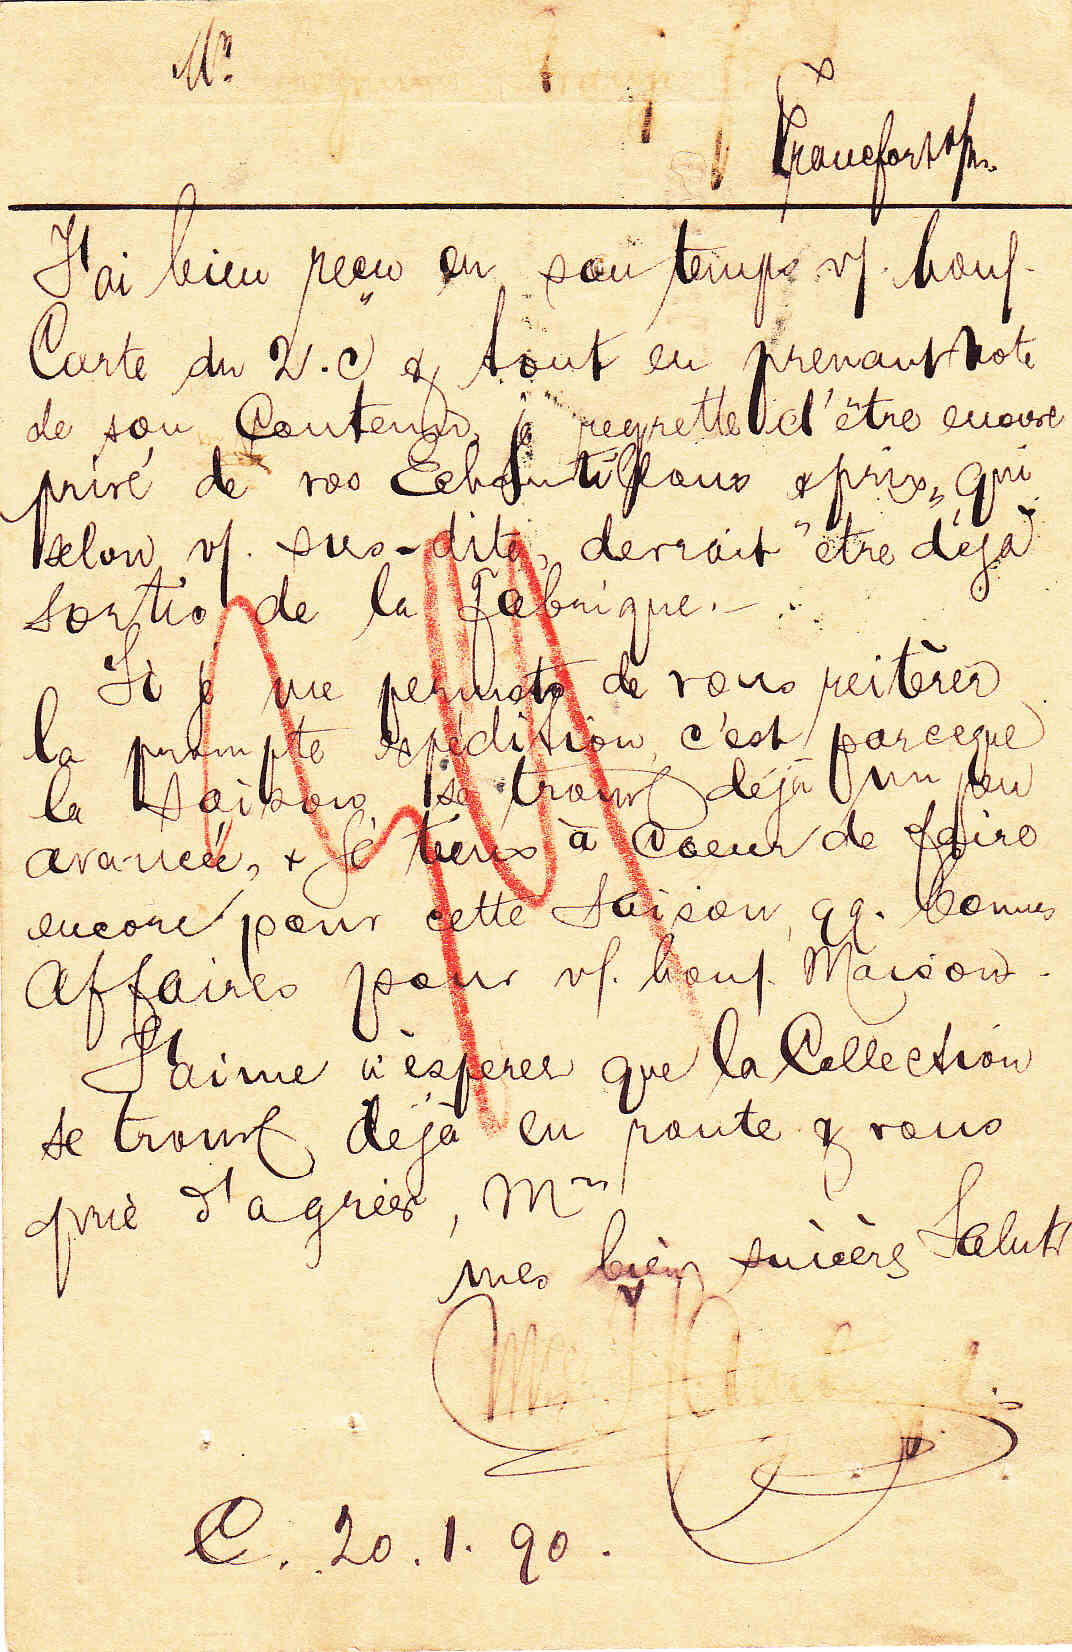 Mrs
Francfort s/m.
J'ai bien reçu en son temps v/. hon/.
Carte du 2.c & tout en prenant note
de son Contenu, je regrette d'être encore
privé de vos Echantillons & prix, qui
selon v/. sus-dite, devrait être déjà
sortis de la Fabrique.-
Si je me permets de vous réitérer
la prompte expédition, c'est parceque
la Saison se trouve déjà un peu
avancée, & je tiens à Coeur de faire
encore pour cette Saison, qq. bonnes
Affaires pour v/. hon/. Maison.
J'aime à èsperer que la Collection
se trouve déjà en route & vous
prie d'agréer, Mrs
mes bien sincères Saluts
C. 20.1.90.